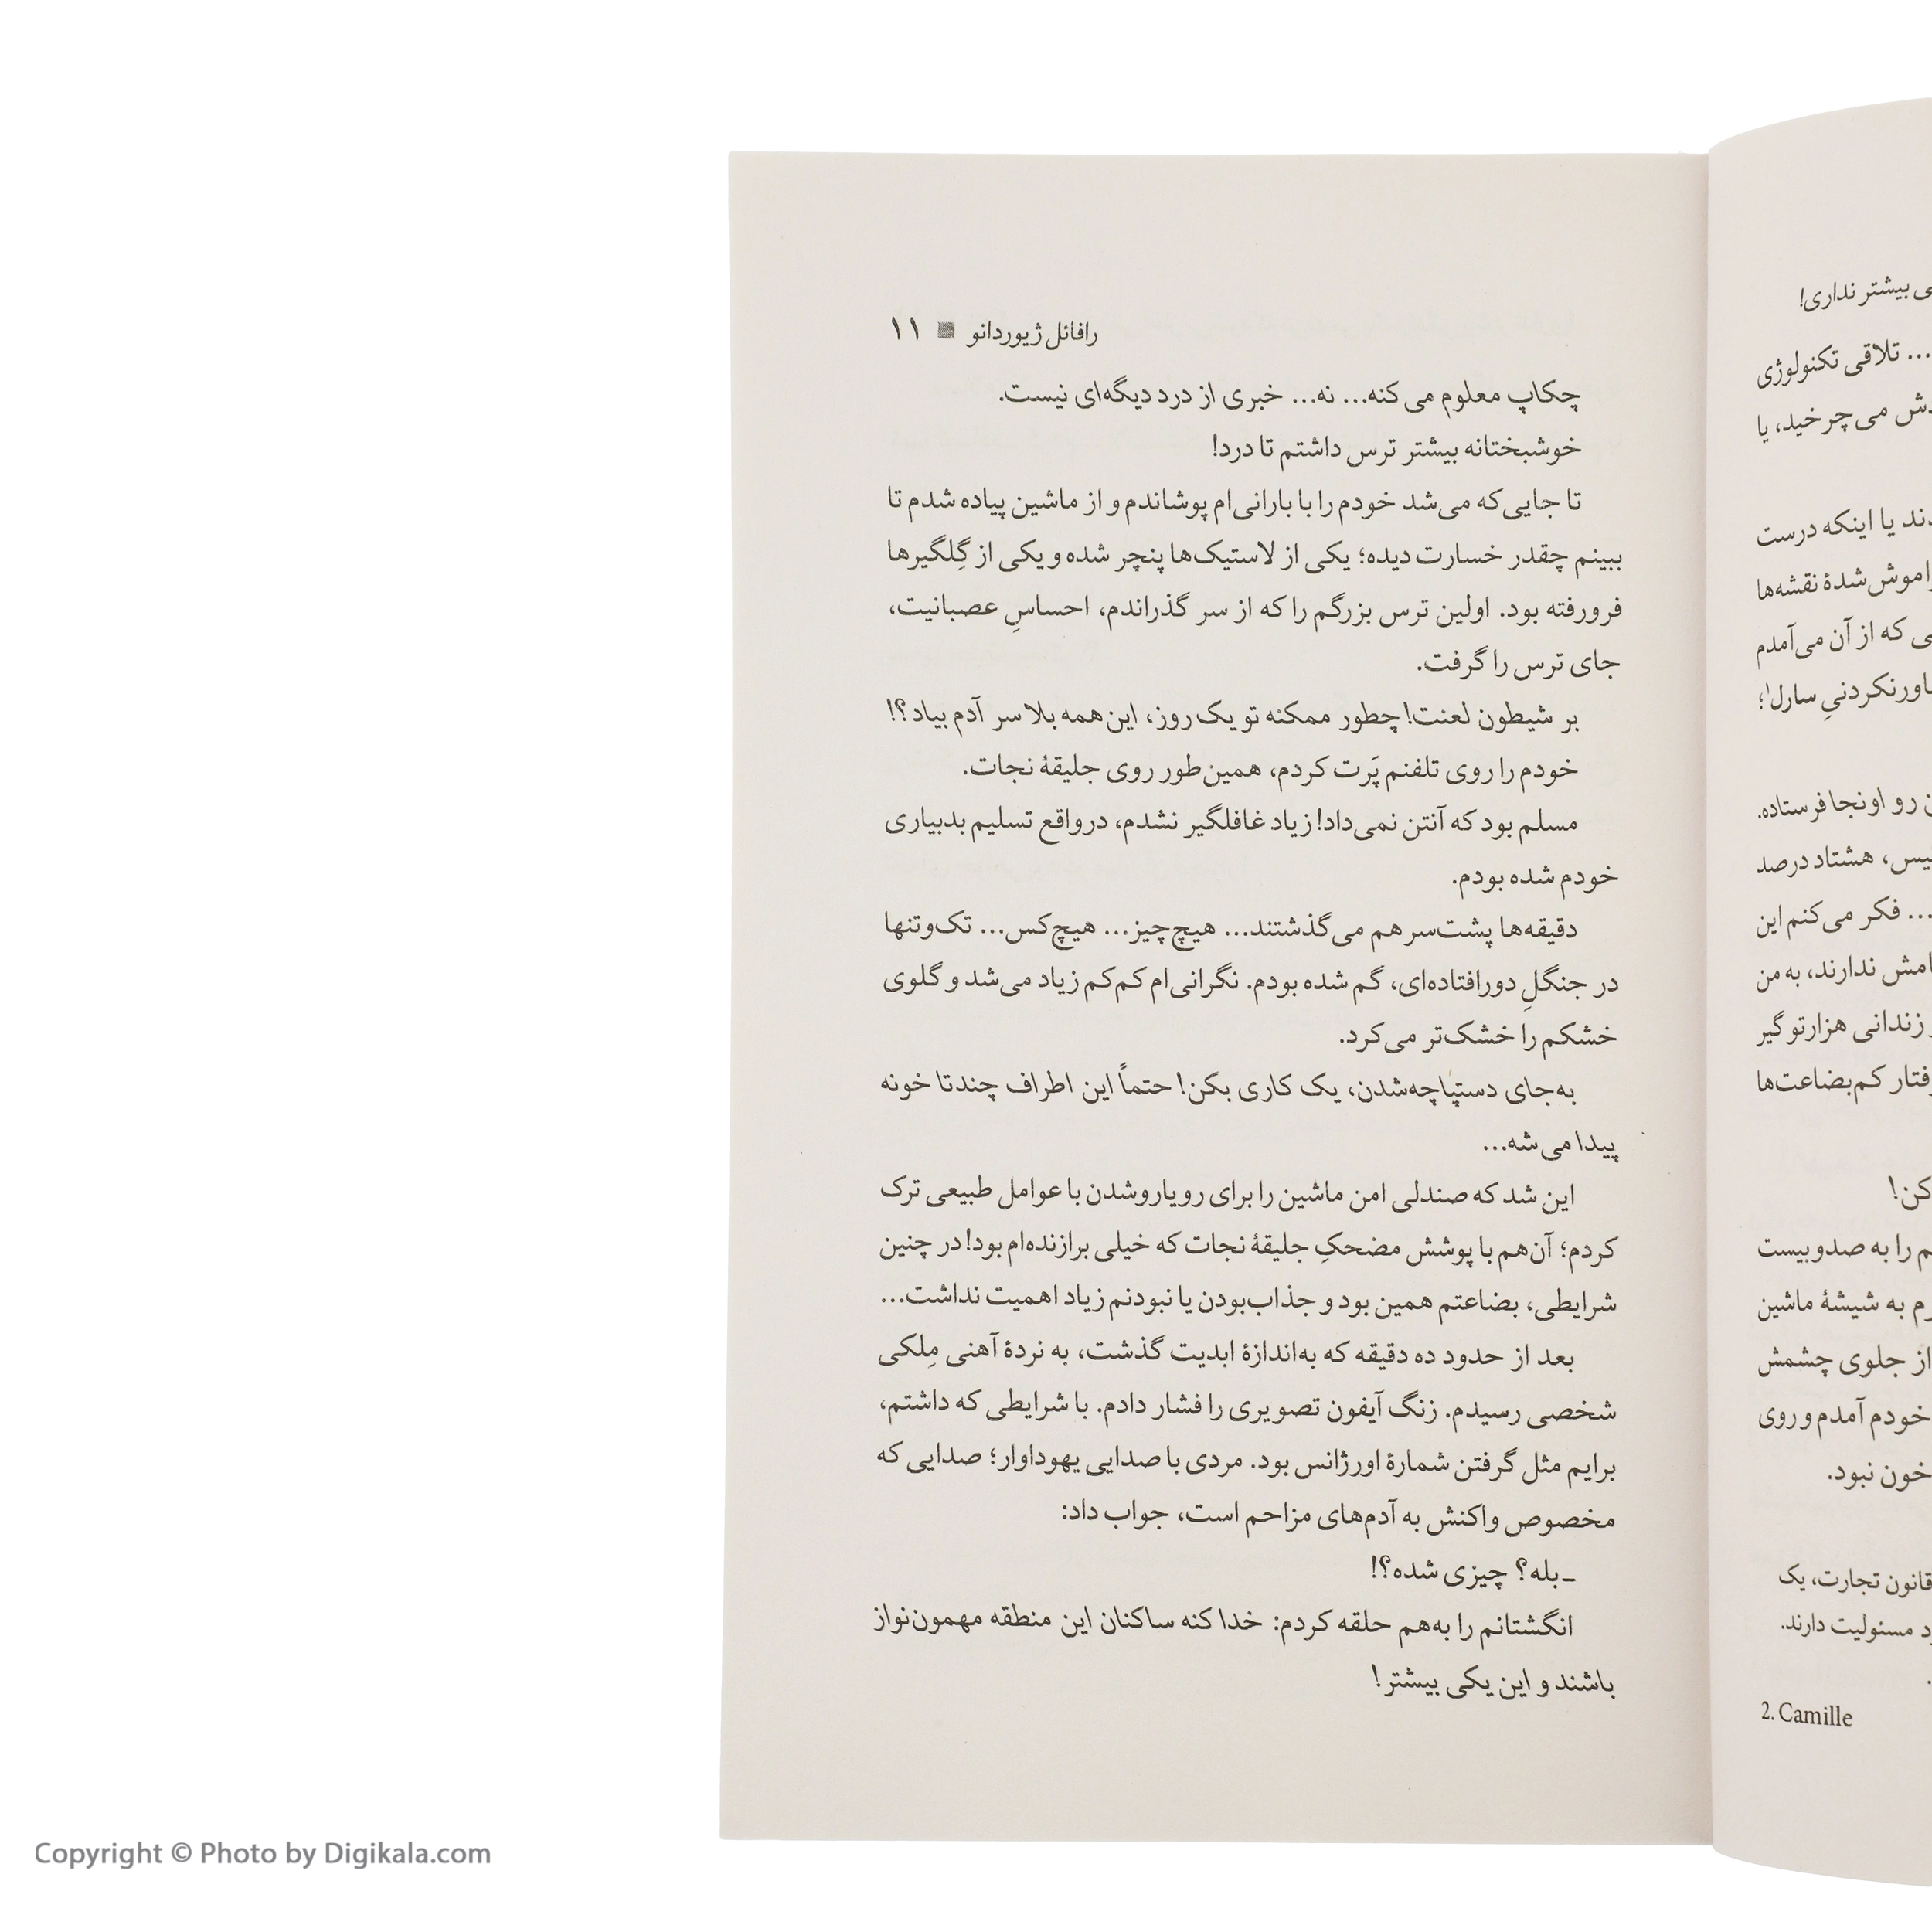 ی بیشتر نداری!
... تلاقی تکنولوژی
می‌چرخید، یا
یا اینکه درست
نقشه‌ها
که از آن می‌آمدم
سارل۱؛
رو اونجا فرستاده.
هشتاد درصد
... فکر می‌کنم این
ندارند، به من
زندانی هزارتو گیر
کم‌بضاعت‌ها
کن!
را به صدوبیست
به شیشهٔ ماشین
از جلوی چشمش
خودم آمدم و روی
خون نبود.
قانون تجارت، یک
مسئولیت دارند.
2. Camille
رافائل ژیوردانو ۱۱
چکاپ معلوم می‌کنه... نه... خبری از درد دیگه‌ای نیست.
خوشبختانه بیشتر ترس داشتم تا درد!
تا جایی‌که می‌شد خودم را با بارانی‌ام پوشاندم و از ماشین پیاده شدم تا
ببینم چقدر خسارت دیده؛ یکی از لاستیک‌ها پنچر شده و یکی از گِلگیرها
فرورفته بود. اولین ترس بزرگم را که از سر گذراندم، احساسِ عصبانیت،
جای ترس را گرفت.
بر شیطون لعنت! چطور ممکنه تو یک روز، این‌همه بلا سر آدم بیاد؟!
خودم را روی تلفنم پَرت کردم، همین‌طور روی جلیقهٔ نجات.
مسلم بود که آنتن نمی‌داد! زیاد غافلگیر نشدم، درواقع تسلیم بدبیاری
خودم شده بودم.
دقیقه‌ها پشت‌سرهم می‌گذشتند... هیچ‌چیز... هیچ‌کس... تک‌وتنها
در جنگلِ دورافتاده‌ای، گم شده بودم. نگرانی‌ام کم‌کم زیاد می‌شد و گلوی
خشکم را خشک‌تر می‌کرد.
به‌جای دستپاچه‌شدن، یک کاری بکن! حتماً این اطراف چندتا خونه
پیدا می‌شه...
این شد که صندلی امن ماشین را برای رویاروشدن با عوامل طبیعی ترک
کردم؛ آن‌هم با پوشش مضحکِ جلیقهٔ نجات که خیلی برازنده‌ام بود! در چنین
شرایطی، بضاعتم همین بود و جذاب‌بودن یا نبودنم زیاد اهمیت نداشت...
بعد از حدود ده دقیقه که به‌اندازهٔ ابدیت گذشت، به نردهٔ آهنی مِلکی
شخصی رسیدم. زنگ آیفون تصویری را فشار دادم. با شرایطی که داشتم،
برایم مثل گرفتن شمارهٔ اورژانس بود. مردی با صدایی یهوداوار؛ صدایی که
مخصوص واکنش به آدم‌های مزاحم است، جواب داد:
ـ بله؟ چیزی شده؟!
انگشتانم را به‌هم حلقه کردم: خدا کنه ساکنان این منطقه مهمون‌نواز
باشند و این یکی بیشتر!
Copyright © Photo by Digikala.com